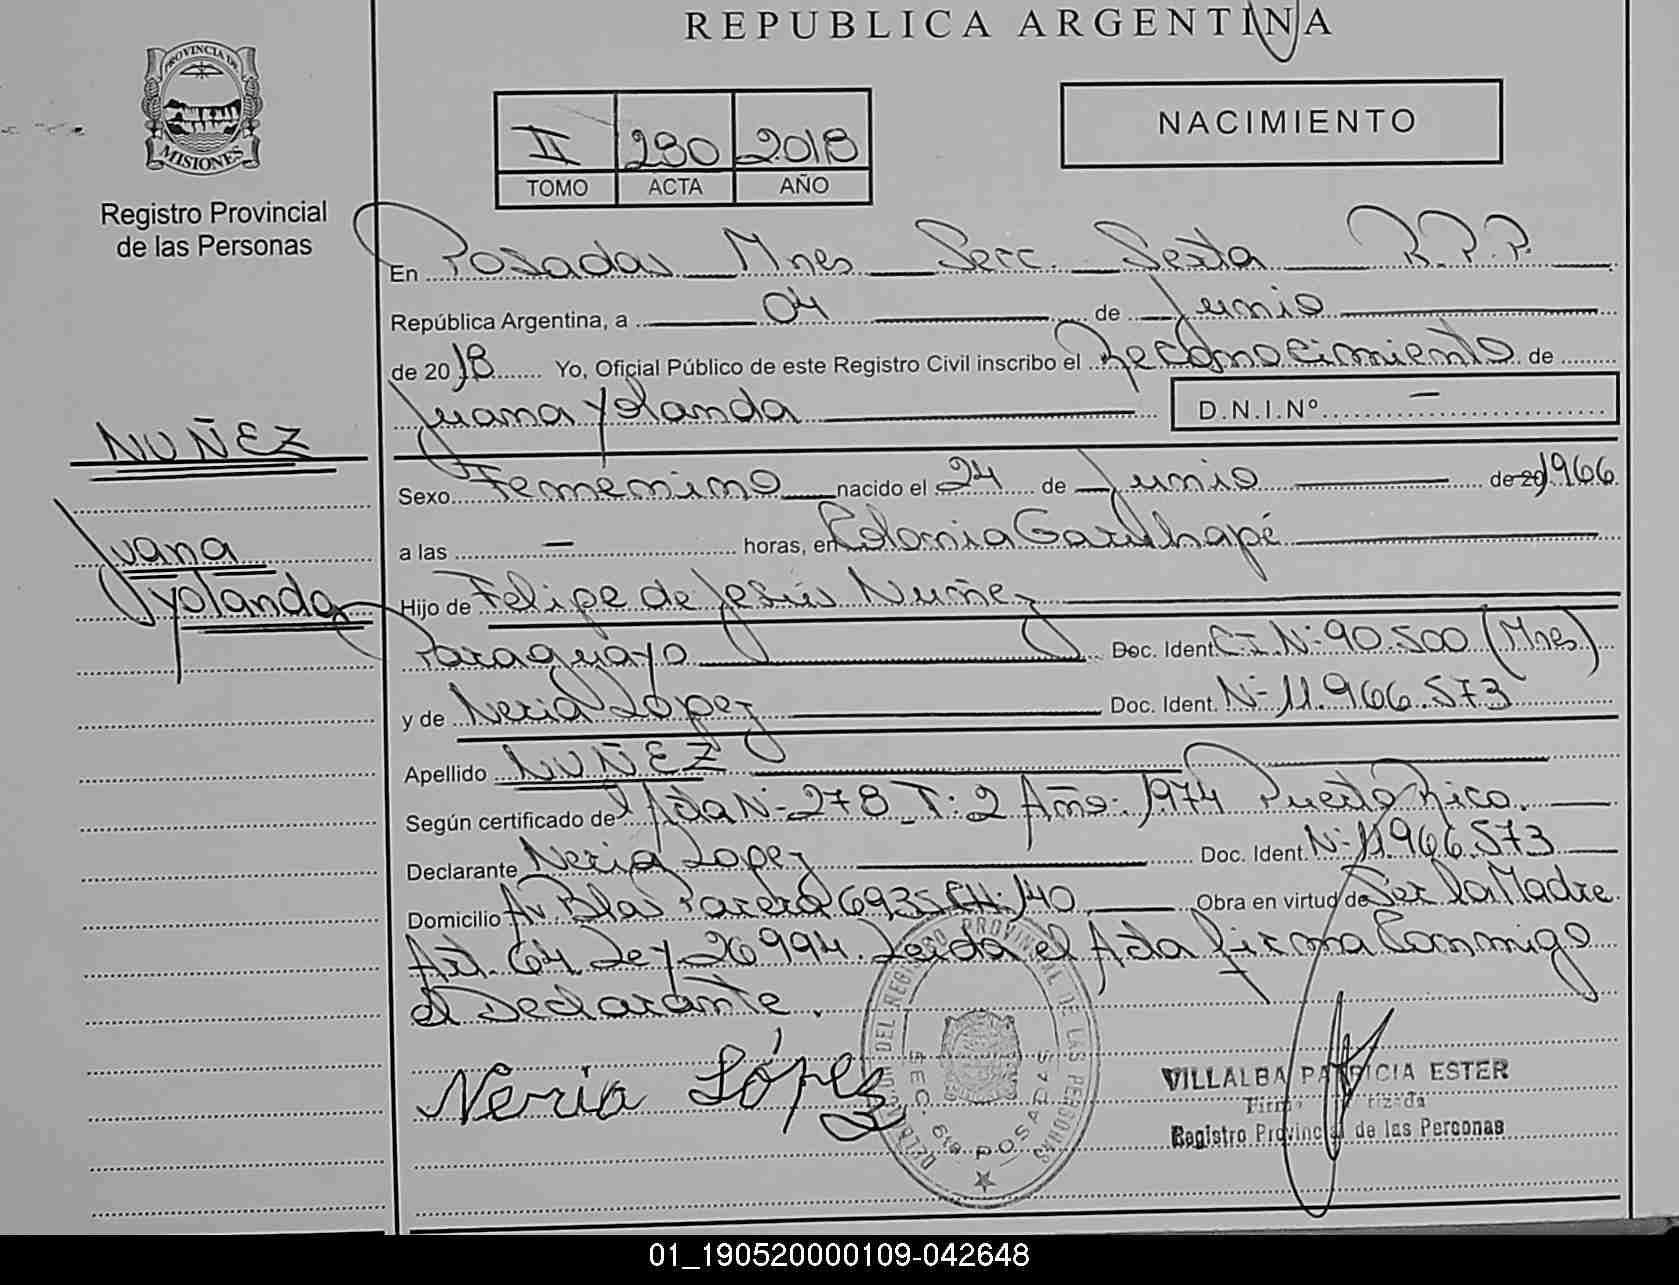 REPUBLICA ARGENTINA
PROVINCIA DE
MISIONES
Registro Provincial
de las Personas
NACIMIENTO
II 280 2018
TOMO ACTA AÑO
En Posadas Mnes Secc. Sexta R.P.P.
República Argentina, a 04 de Junio
de 2018 Yo, Oficial Público de este Registro Civil inscribo el Reconocimiento de
Juana Yolanda D.N.I.Nº -
NUÑEZ
Sexo Femenino nacido el 24 de Junio de 20 1966
Juana
a las - horas, en Colonia Garuhapé
Yolanda
Hijo de Felipe de Jesús Nuñez
Paraguayo Doc. Ident C.I.Nº 90.500 (Mnes)
y de Neria López Doc. Ident. Nº 11.966.573
Apellido NUÑEZ
Según certificado de l Acta Nº 278 T: 2 Año: 1974 Puerto Rico.
Declarante Neria Lopez Doc. Ident. Nº 11966573
Domicilio Av Blas Parera 6935 CH: 140 Obra en virtud de Ser la Madre
Art. 64 Ley 26994. Leida el Acta firma Conmigo
el Declarante.
Neria López
DEL REGISTRO PROVINCIAL DE LAS PERSONAS
SEC. 6ta POSADAS
VILLALBA PATRICIA ESTER
Registro Provincial de las Personas
01_190520000109-042648